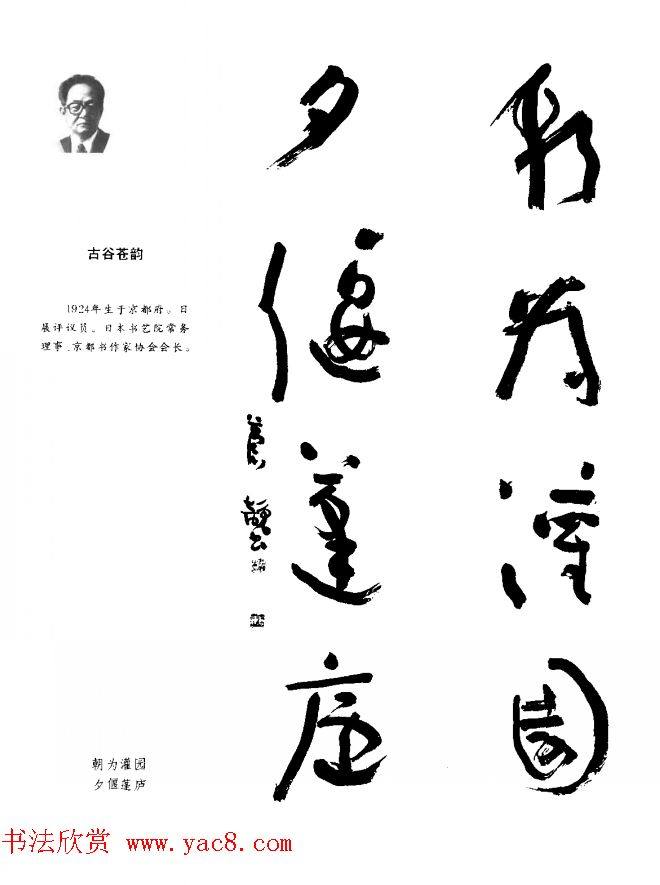 朝為灌園
夕偃蓬廬
蒼韻
古谷苍韵
1924年生于京都府。日
展评议员。日本书艺院常务
理事、京都书作家协会会长。
朝为灌园
夕偃蓬庐
书法欣赏 www.yac8.com